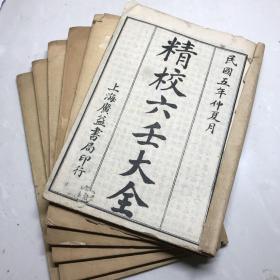 民國五年仲夏月
精校六壬大全
上海廣益書局印行